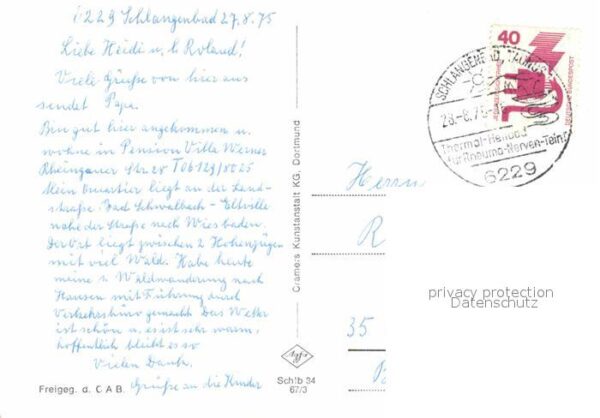 6229 Schlangenbad 27.8.75
Liebe Heidi u. lb Roland!
Viele Grüße von hier aus
sendet Papa.
Bin gut hier angekommen u.
wohne in Pension Villa Werner
Rheingauer Str. 28 T 06129/8025
Mein Quartier liegt an der Land-
straße Bad Schwalbach - Eltville
nahe der Straße nach Wiesbaden.
Der Ort liegt zwischen 2 Höhenzügen
mit viel Wald. Habe heute
meine 1. Waldwanderung nach
Hausen mit Führung durch
Verkehrsbüro gemacht. Das Wetter
ist schön u. es ist sehr warm,
hoffentlich bleibt es so
Vielen Dank.
Grüße an die Kinder
Freigeg. d. C A B.
Cramers Kunstanstalt KG. Dortmund
Agfa
Schlb 34
67/3
40
DEUTSCHE BUNDESPOST
SCHLANGENBAD, TAUNUS
28.-8.75
Thermal-Heilbad
für Rheuma-Nerven-Teint
6229
Herrn
R
35
privacy protection
Datenschutz